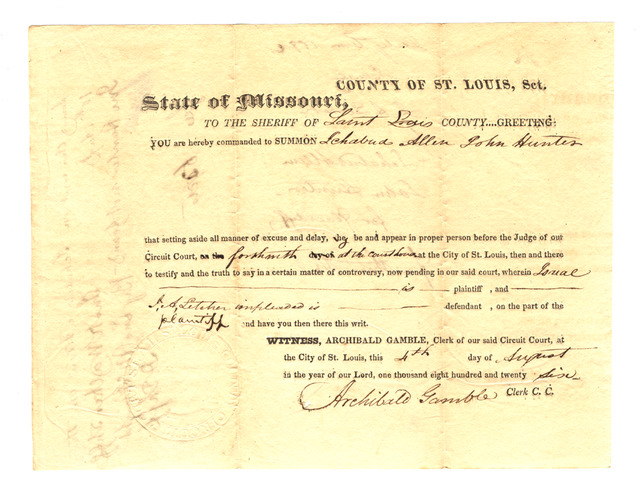 COUNTY OF ST. LOUIS, Sct.
State of Missouri,
TO THE SHERIFF OF Saint Louis COUNTY....GREETING:
YOU are hereby commanded to SUMMON Ichabud Allen John Hunter
that setting aside all manner of excuse and delay, they be and appear in proper person before the Judge of our
Circuit Court, on the forthwith day of at the courthouse at the City of St. Louis, then and there
to testify and the truth to say in a certain matter of controversy, now pending in our said court, wherein
is plaintiff, and
I. A. Letcher impleaded is defendant, on the part of the
plaintiff and have you then there this writ.
WITNESS, ARCHIBALD GAMBLE, Clerk of our said Circuit Court, at
the City of St. Louis, this 4th day of August
in the year of our Lord, one thousand eight hundred and twenty six
Archibald Gamble Clerk C. C.